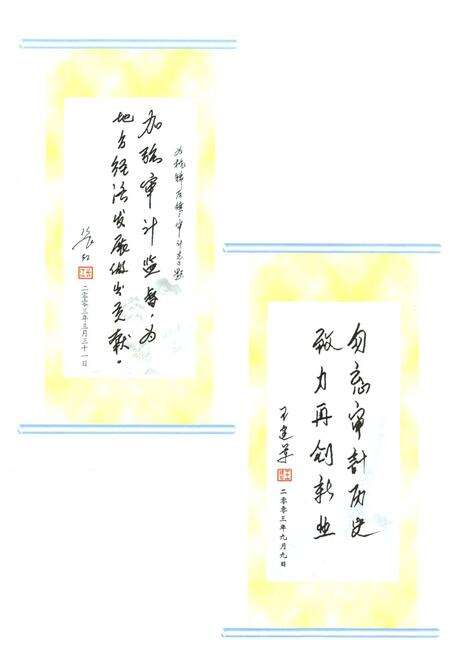 加强审计监督,为
地方经济发展做出贡献。
二〇〇三年三月三十一日
勿忘审计历史
致力再创新业
王建军
二〇〇三年九月九日